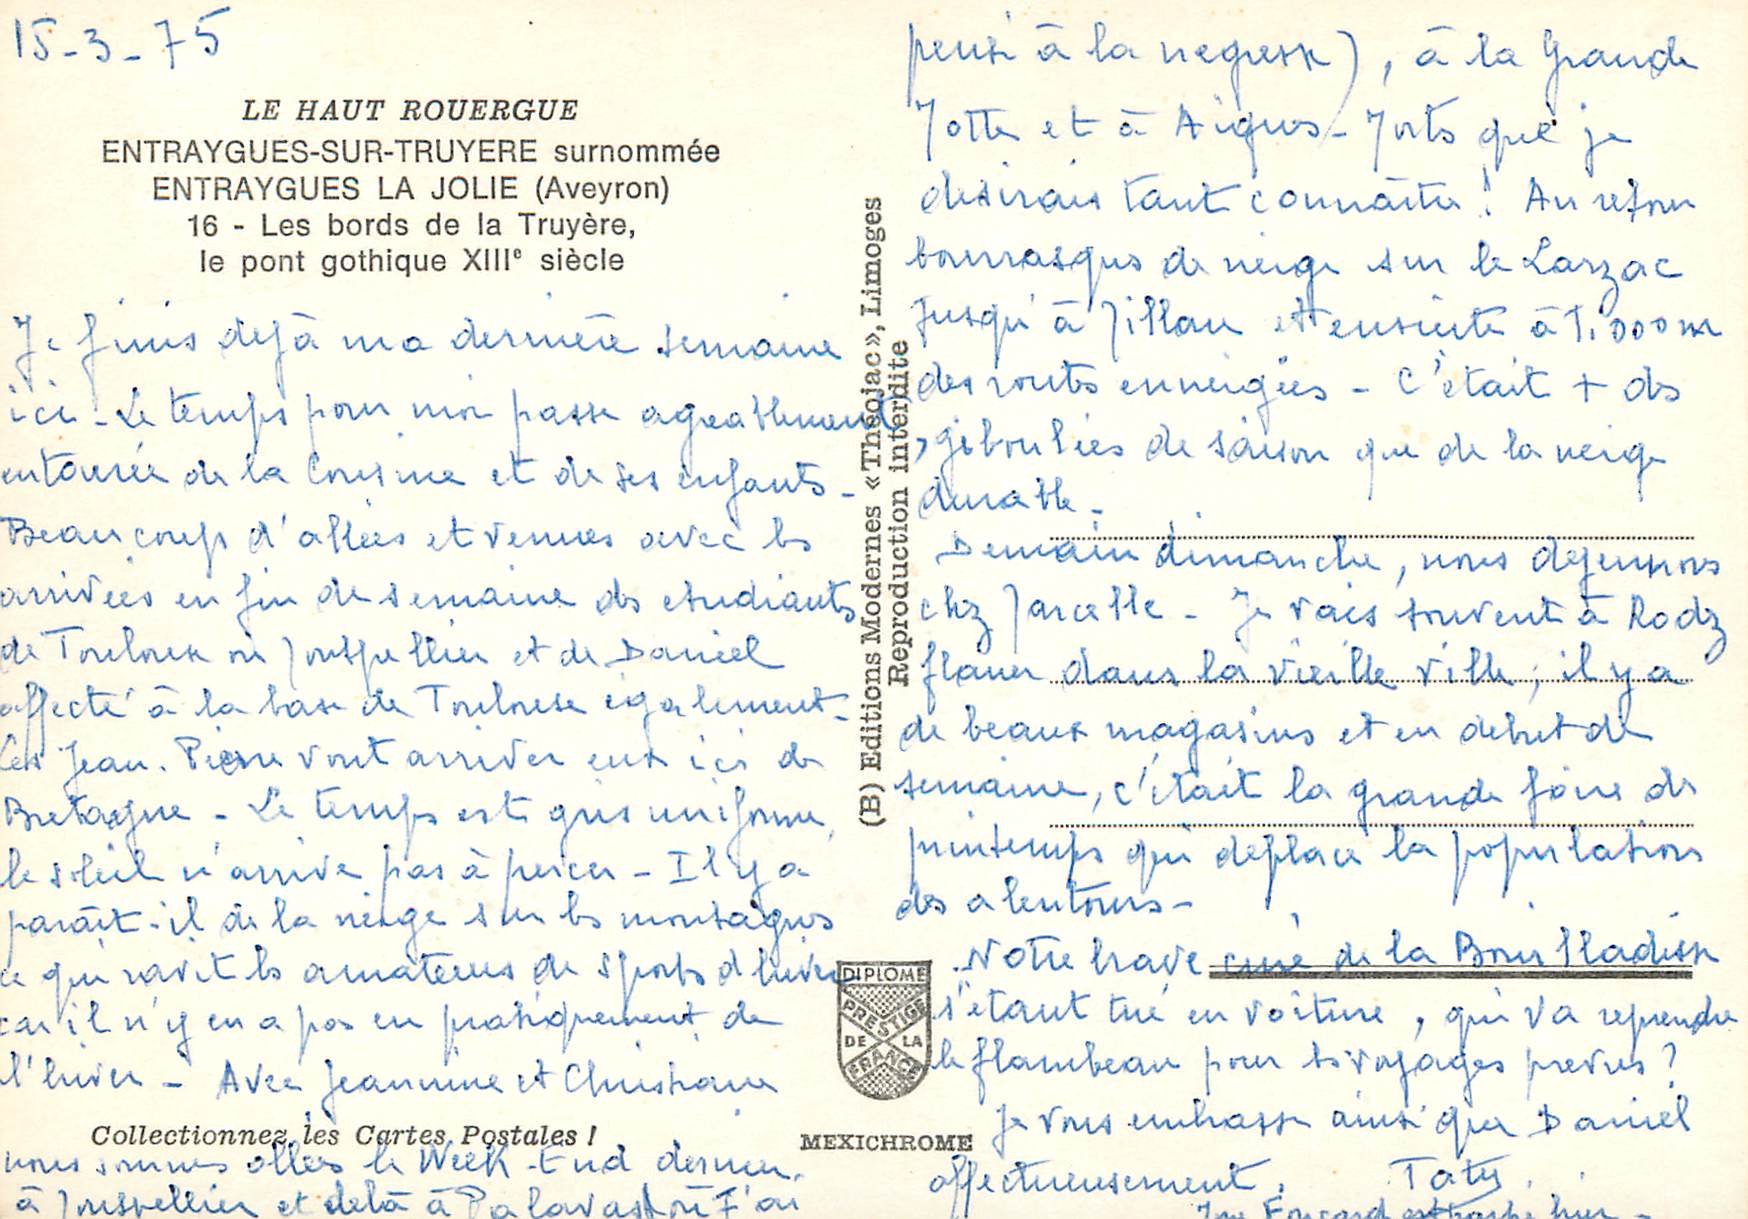 15-3-75
LE HAUT ROUERGUE
ENTRAYGUES-SUR-TRUYERE surnommée
ENTRAYGUES LA JOLIE (Aveyron)
16 - Les bords de la Truyère,
le pont gothique XIIIe siècle
Je finis dejà ma dernière semaine
ici - Le temps pour moi passe agreablement
entourée de la Cousine et de ses enfants -
Beaucoup d'allées et venues avec les
arrivées en fin de semaine des etudiants
de Toulouse ou Montpellier et de Daniel
affecté à la base de Toulouse egalement -
Les Jean-Pierre vont arriver eux ici de
Bretagne - Le temps est gris uniforme,
le soleil n'arrive pas à percer - Il y a
paraît-il de la neige sur les montagnes
ce qui ravit les amateurs de sports d'hiver
car il n'y en a pas eu pratiquement de
l'hiver - Avec Jeannine et Christiane
Collectionnez les Cartes Postales !
nous sommes allées le Week-End dernier
à Montpellier et delà à Palavas (où j'ai
(B) Editions Modernes «Théojac», Limoges
Reproduction interdite
DIPLOME
PRESTIGE
DE LA
FRANCE
MEXICHROME
pensé à la negresse), à la Grande
Motte et à Aigues-Mortes que je
desirais tant connaître ! Au retour
bourrasques de neige sur le Larzac
jusqu'à Millau et ensuite à 1.000 m
des routes enneigées - C'était + des
giboulées de saison que de la neige
durable -
Demain dimanche, nous dejeunons
chez Marcelle - Je vais souvent à Rodez
flaner dans la vieille ville, il y a
de beaux magasins et en debut de
semaine, c'était la grande foire de
printemps qui deplace la population
des alentours -
Notre brave curé de la Bouilladisse
s'étant tué en voiture, qui va reprendre
le flambeau pour les voyages prevus ?
Je vous embrasse ainsi que Daniel
affectueusement. Taty.
hier -